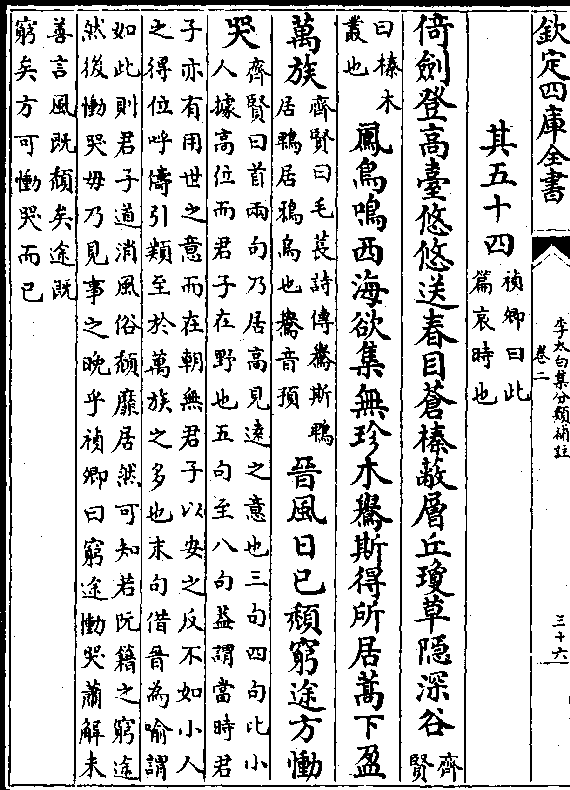 欽定四庫全書
李太白集分類補註
卷二
三十六
其五十四
禎卿曰此
篇哀時也
倚劍登高臺悠悠送春目蒼榛蔽層丘瓊草隱深谷
齊
賢
曰榛木
叢也
鳳鳥鳴西海欲集無珍木鷽斯得所居蒿下盈
萬族
齊賢曰毛萇詩傳鷽斯鵯
居鵯居鴉烏也鷽音預
晉風日已頽窮途方慟
哭
齊賢曰首兩句乃居高見逺之意也三句四句比小
人據高位而君子在野也五句至八句葢謂當時君
子亦有用世之意而在朝無君子以安之反不如小人
之得位呼儔引類至於萬族之多也末句借晉為喻謂
如此則君子道消風俗頽靡居然可知若阮籍之窮途
然後慟哭毋乃見事之晚乎禎卿曰窮途慟哭蕭解未
善言風既頽矣途既
窮矣方可慟哭而已